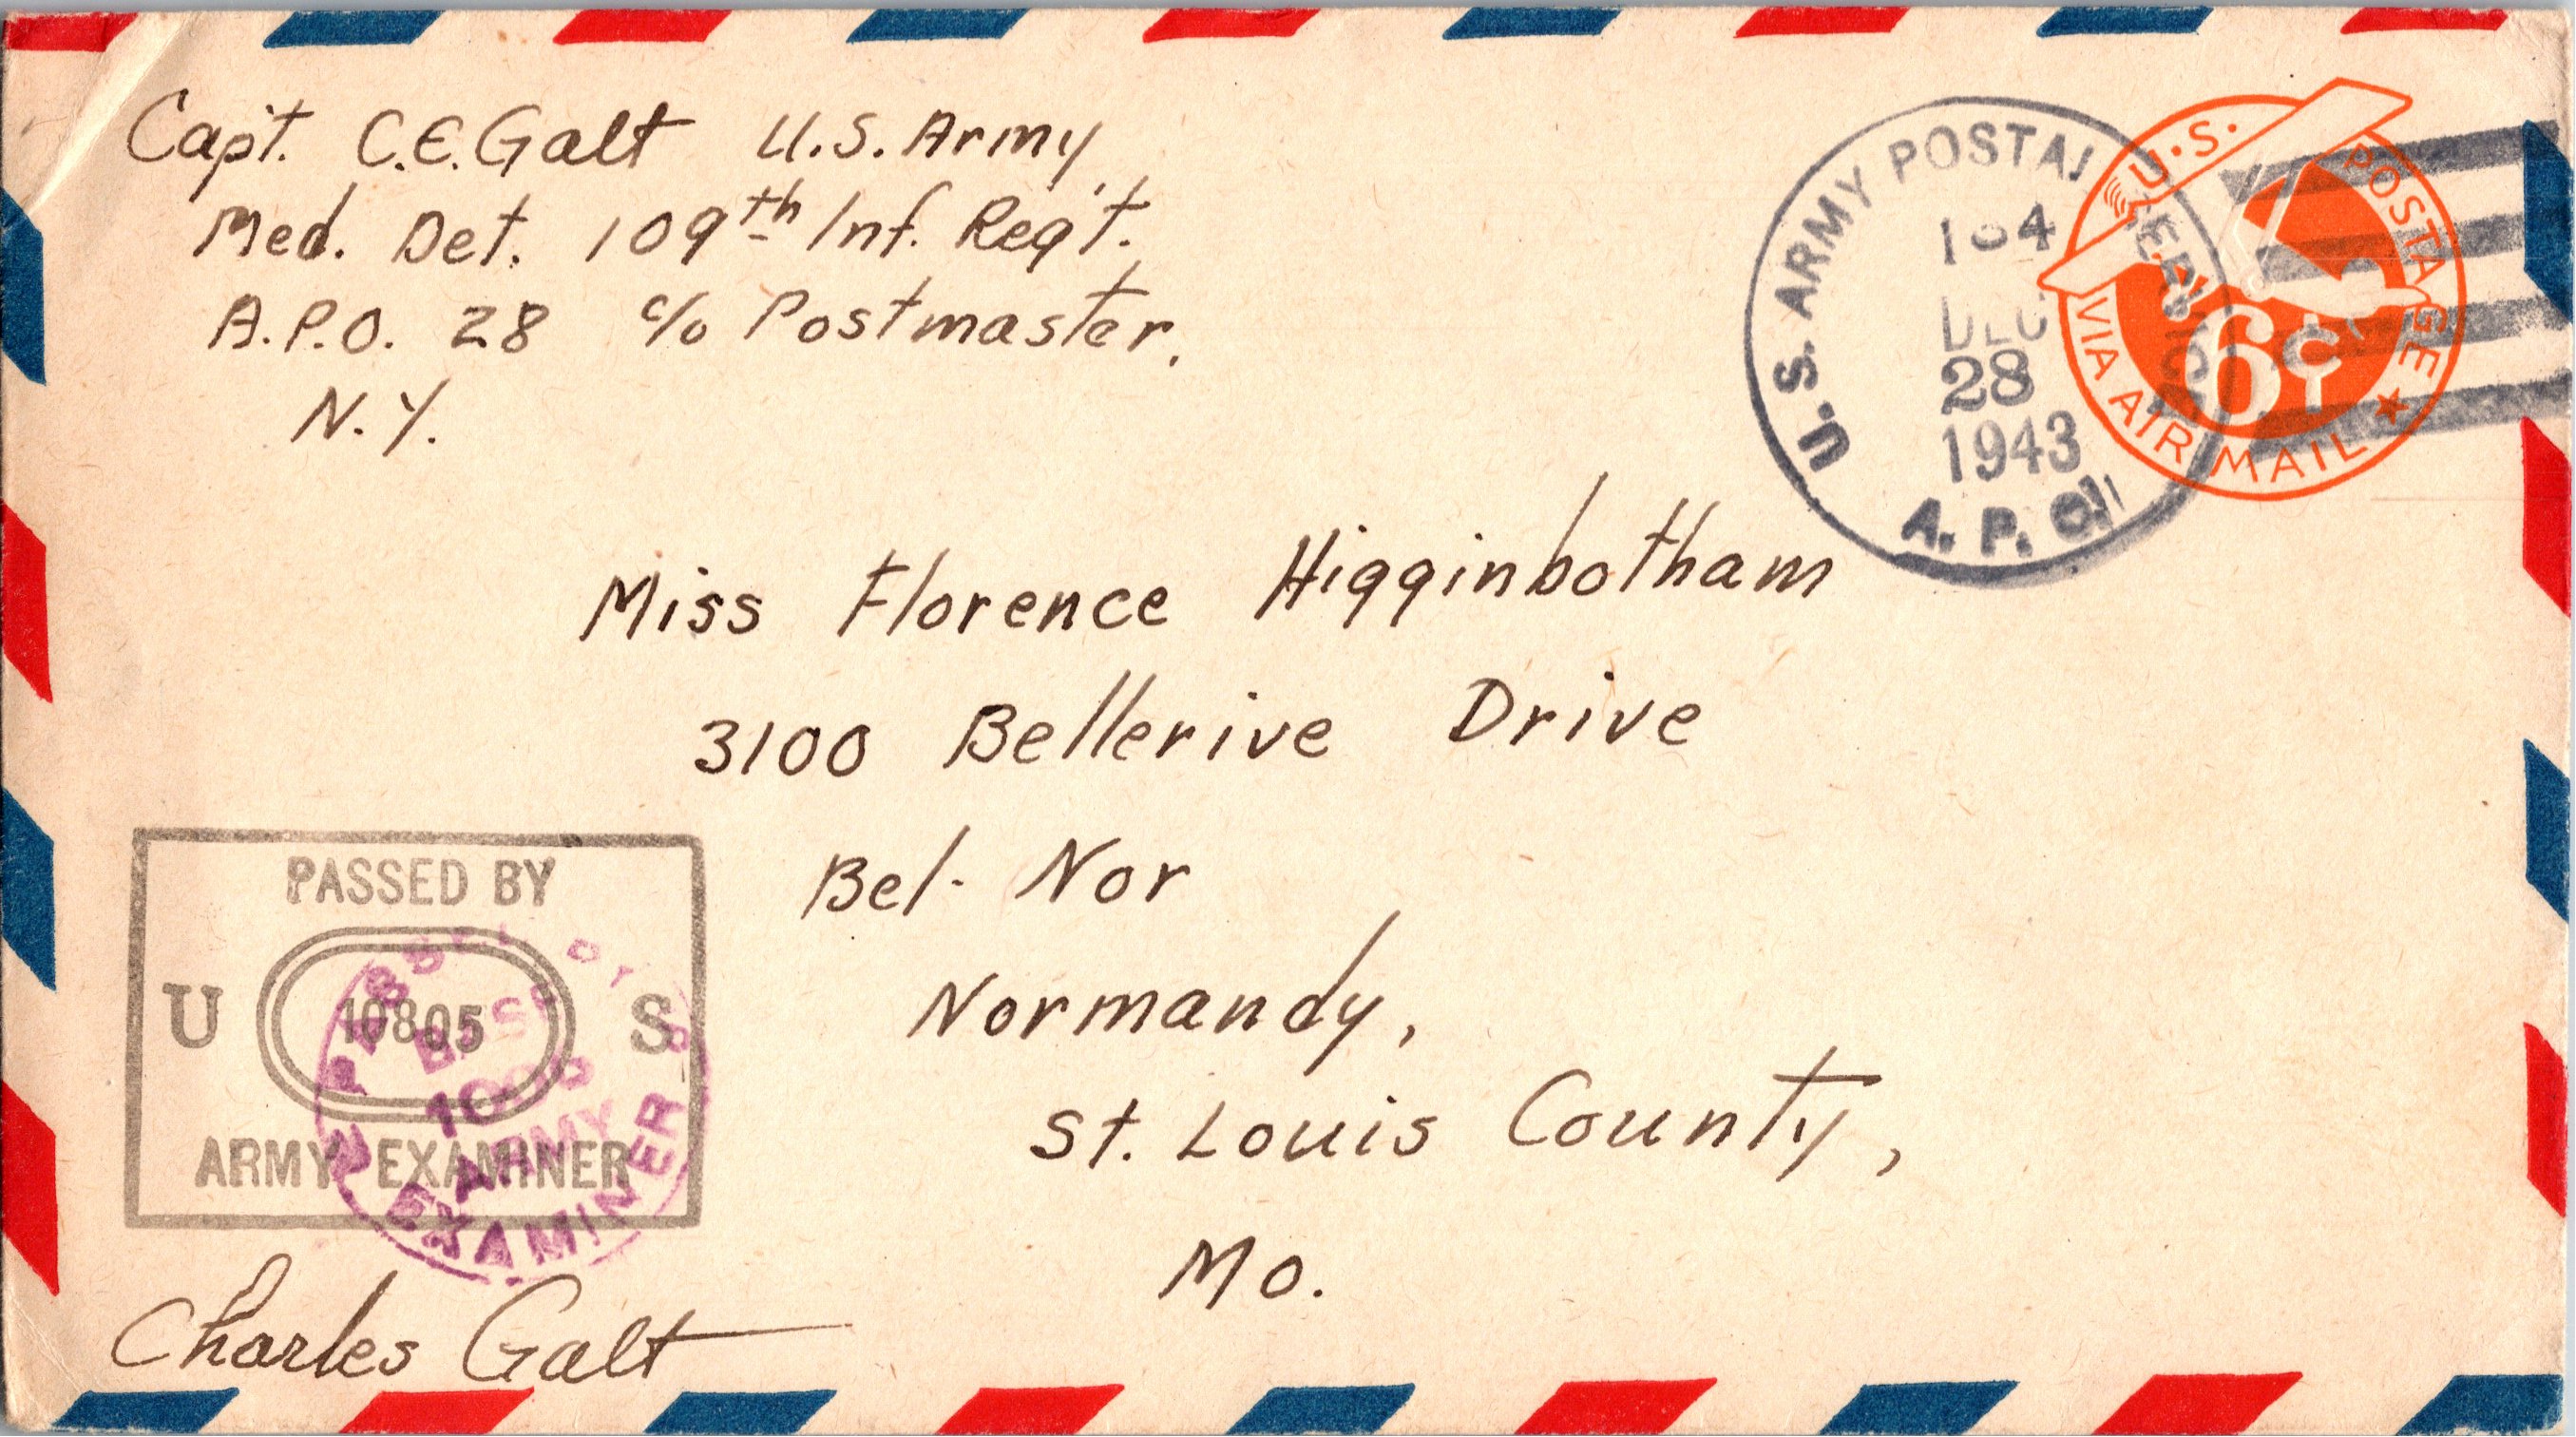 Capt. C.E. Galt U.S. Army
Med. Det. 109th Inf. Reg't.
A.P.O. 28 c/o Postmaster,
N.Y.
U.S. ARMY POSTAL SERVICE
DEC
28
1943
A. P. O.
U.S. POSTAGE
6¢
VIA AIR MAIL
Miss Florence Higginbotham
3100 Bellerive Drive
Bel-Nor
Normandy,
St. Louis County,
Mo.
PASSED BY
U 10805 S
ARMY EXAMINER
PASSED BY
BASE
ARMY
EXAMINER
Charles Galt